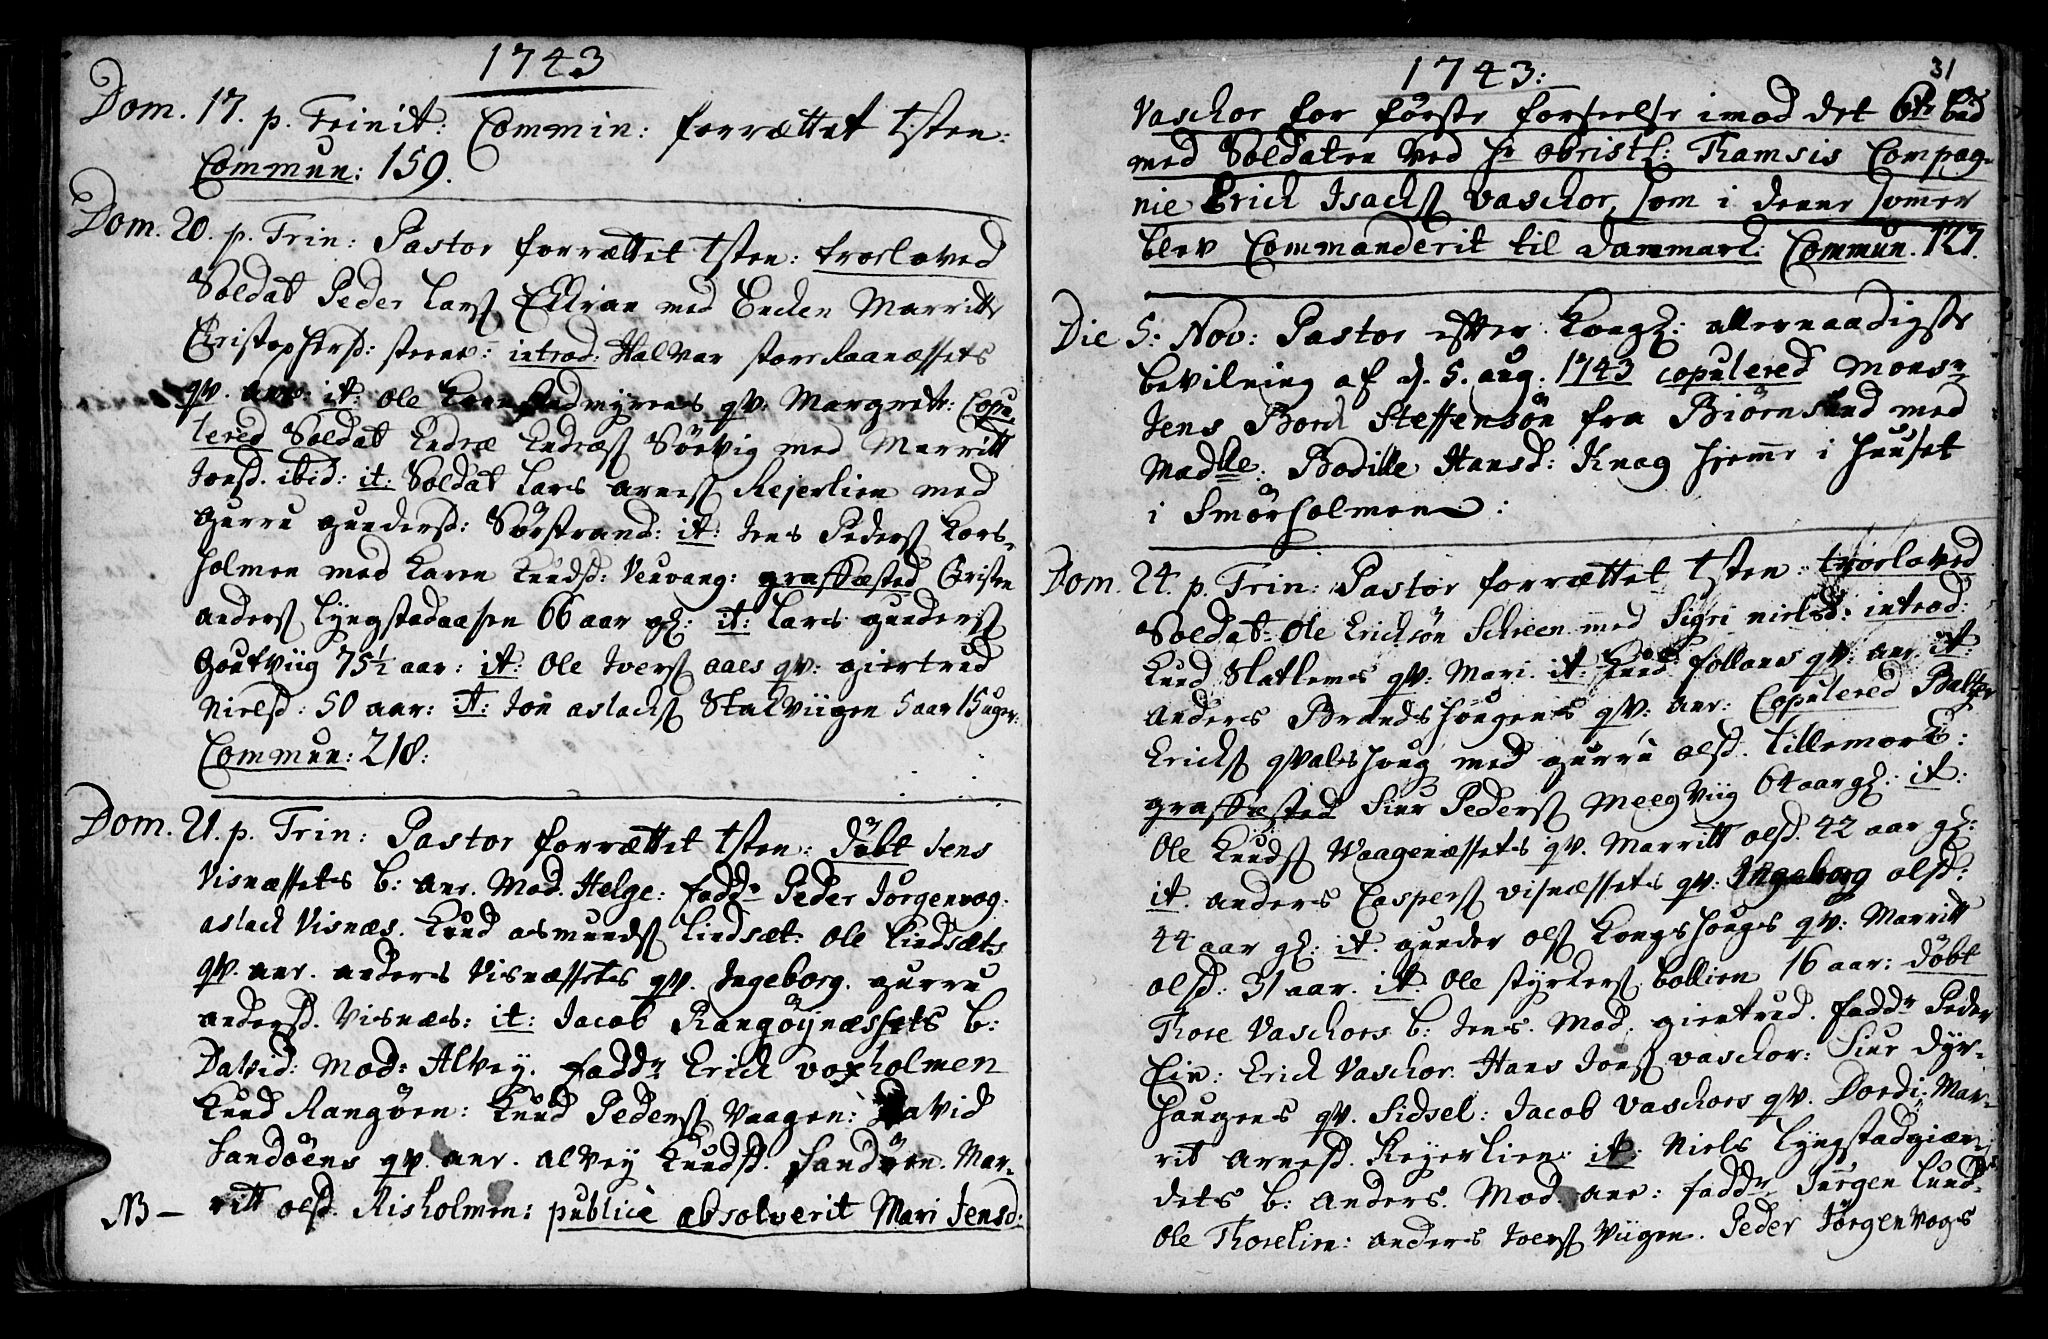 1743
Dom. 17. p. Trinit: Commin: forrættet tsten:
Commun: 159.
Dom. 20. p. Trin: Pastor forrættet tsten: troeloved
Soldat Peder Larsß Ekran med Encken Marritte
Christophersd: steene: introd: Halvar store Raanæssets
qv. ane: it: Ole myrens qv: Margrett: Copu-
lered Soldat Endræ Endræsß Sörvig med Marritt
Jonsd. ibid: it: Soldat Lars Arnesß Rejerlien med
Gurru Gundersd: Sörstrand: it: Jens Pedersß Kors-
holmen med Karen Knudsd: Vevang: graffæsted Christen
Andersß Lyngstadaasen 66 aar gl: it: Lars Gundersß
Goutviig 75½ aar: it: Ole Iversß Aaes qv: Giertrud
Nielsd: 50 aar: it: Jon Aslacksß Stalviigen 5 aar 15 uger:
Commun: 218:
Dom. 21. p. Trin: Pastor forrættet tsten: döbt Jens
Visnæssets b: Anr. Mod. Helge: fadd Peder Jörgenvog:
Aslack Visnæs. Knud Asmundsß Lindsæt: Ole Lindsæts
qv. Anr. Anders Visnæssets qv. Ingeborg. Gurru
Andersd. Visnæs: it: Jacob Rangöynæssets b:
David: Mod: Alvey. fadd Erick Voxholmen
Knud Rangöen: Knud Pedersß Vaagen: David
Sandöens qv. Anr. Alvey Knudsd. Sandöen. Mar-
NB – ritt Olsd. Risholmen: publicè absolverit Mari Jensd:
1743:
31
Vaschor for förste forseelse imod det 6te bud
med Soldaten ved Hr Obristl: Thamsis Compag-
nie Erick Isacksß Vaschor, som i denne sommer
blev Commanderit til Danmarck. Commun. 127.
Die 5: Nov: Pastor efter Kongl: allernaadigste
bevilning af d. 5. Aug: 1743 copulered Monsr
Jens Bord Steffensön fra Biörnsund med
Madlle. Bodille Hansd: Knag hjemme i huuset
i Smörholmen:
Dom. 24. p. Trin: Pastor forrættet tsten: troeloved
Soldat Ole Ericksön Schreen med Sigri Nielsd: introd:
Knud Slatlems qv: Mari. it: Knud Follans qv: Anr it:
Anders Brandshougens qv: Anr: Copulered Baltzer
Ericksß Qvalshoug med Gurru Olsd. Lillemork:
graffæsted Siur Pedersß Meegviig 64 aar gl: it:
Ole Knudsß Waagenæssets qv. Marritt Olsd. 42 aar gl:
it. Anders Caspersß Visnæssets qv: Ingeborg Olsd:
44 aar gl: it. Gunder Olsß Kongshougs qv: Marritt
Olsd: 31 aar. it. Ole Styrkersß bollien 16 aar: döbt
Thore Vaschors b: Jens. Mod: Giertrud. fadd Peder
Ein: Erick Vaschor. Hans Jonsß Vaschor: Siur Dyr-
haugens qv. Sidsel: Jacob Vaschors qv. Dordi: Mar-
rit Arnesd. Rejerlien: it. Niels Lyngstadgiær-
dets b: Anders. Mod. Anr: fadd Jörgen Lund.
Ole Thorelien: Anders Iversß Viigen. Peder Jörgenvogs